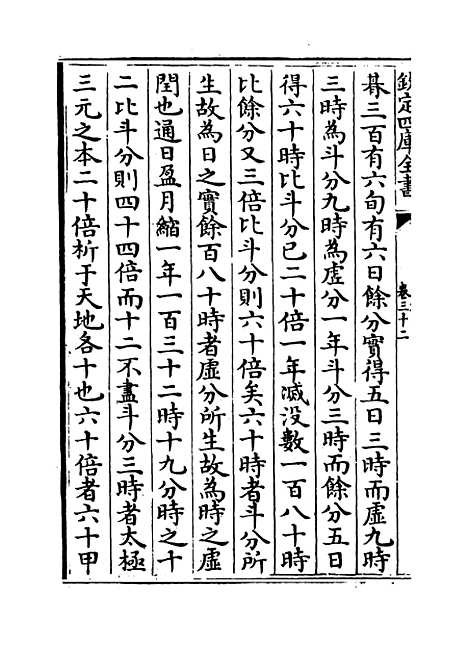 欽定四庫全書
卷三十二
朞三百有六旬有六日餘分實得五日三時而虛九時
三時為斗分九時為虛分一年斗分三時而餘分五日
得六十時比斗分已二十倍一年減没數一百八十時
比餘分又三倍比斗分則六十倍矣六十時者斗分所
生故為日之實餘百八十時者虛分所生故為時之虛
閏也通日盈月縮一年一百三十二時十九分時之十
二比斗分則四十四倍而十二不盡斗分三時者太極
三元之本二十倍析于天地各十也六十倍者六十甲